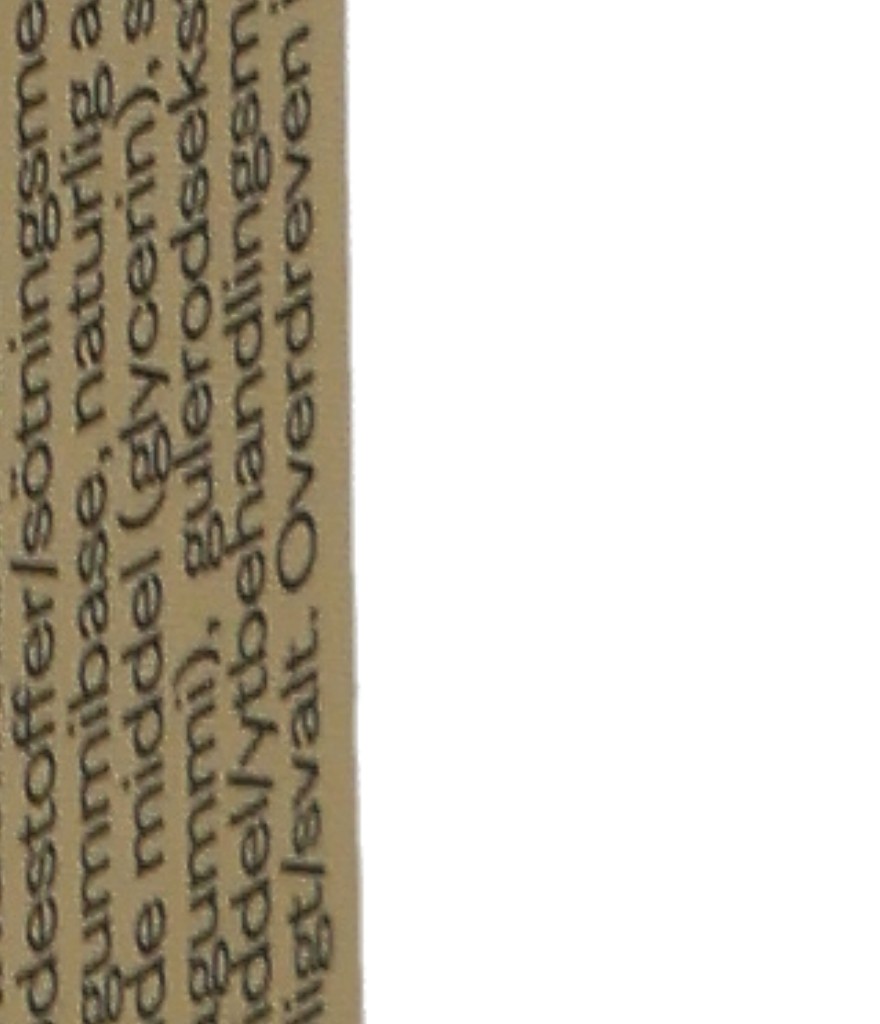 destoffer/sötningsme
gummibase, naturlig a
de middel (glycerin), s
gummi), gulerodseks
ddel/ytbehandlingsm
ligt/svalt. Overdreven i